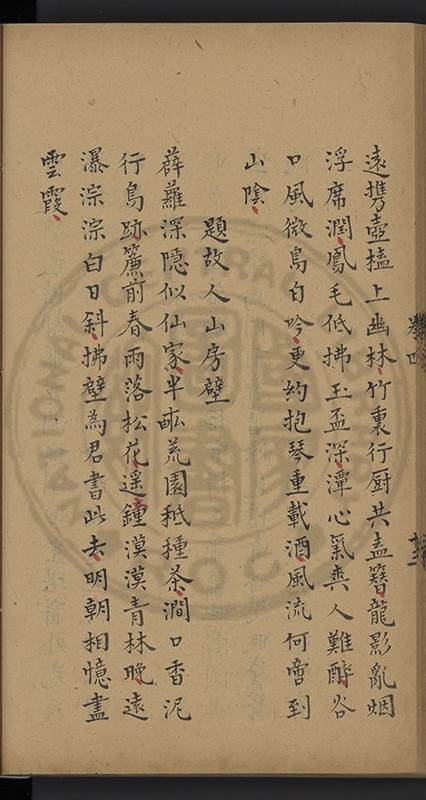 卷四
遠携壺榼上幽林竹裏行厨共盍簪龍影亂烟
浮席潤鳳毛低拂玉盃深潭心氣爽人難醉谷
口風微鳥自吟更約抱琴重載酒風流何啻到
山陰
題故人山房壁
薜蘿深隱似仙家半畝荒園秪種茶澗口香泥
行鳥跡簾前春雨落松花遥鐘漠漠青林晚遠
瀑淙淙白日斜拂壁為君書此去明朝相憶盡
雲霞